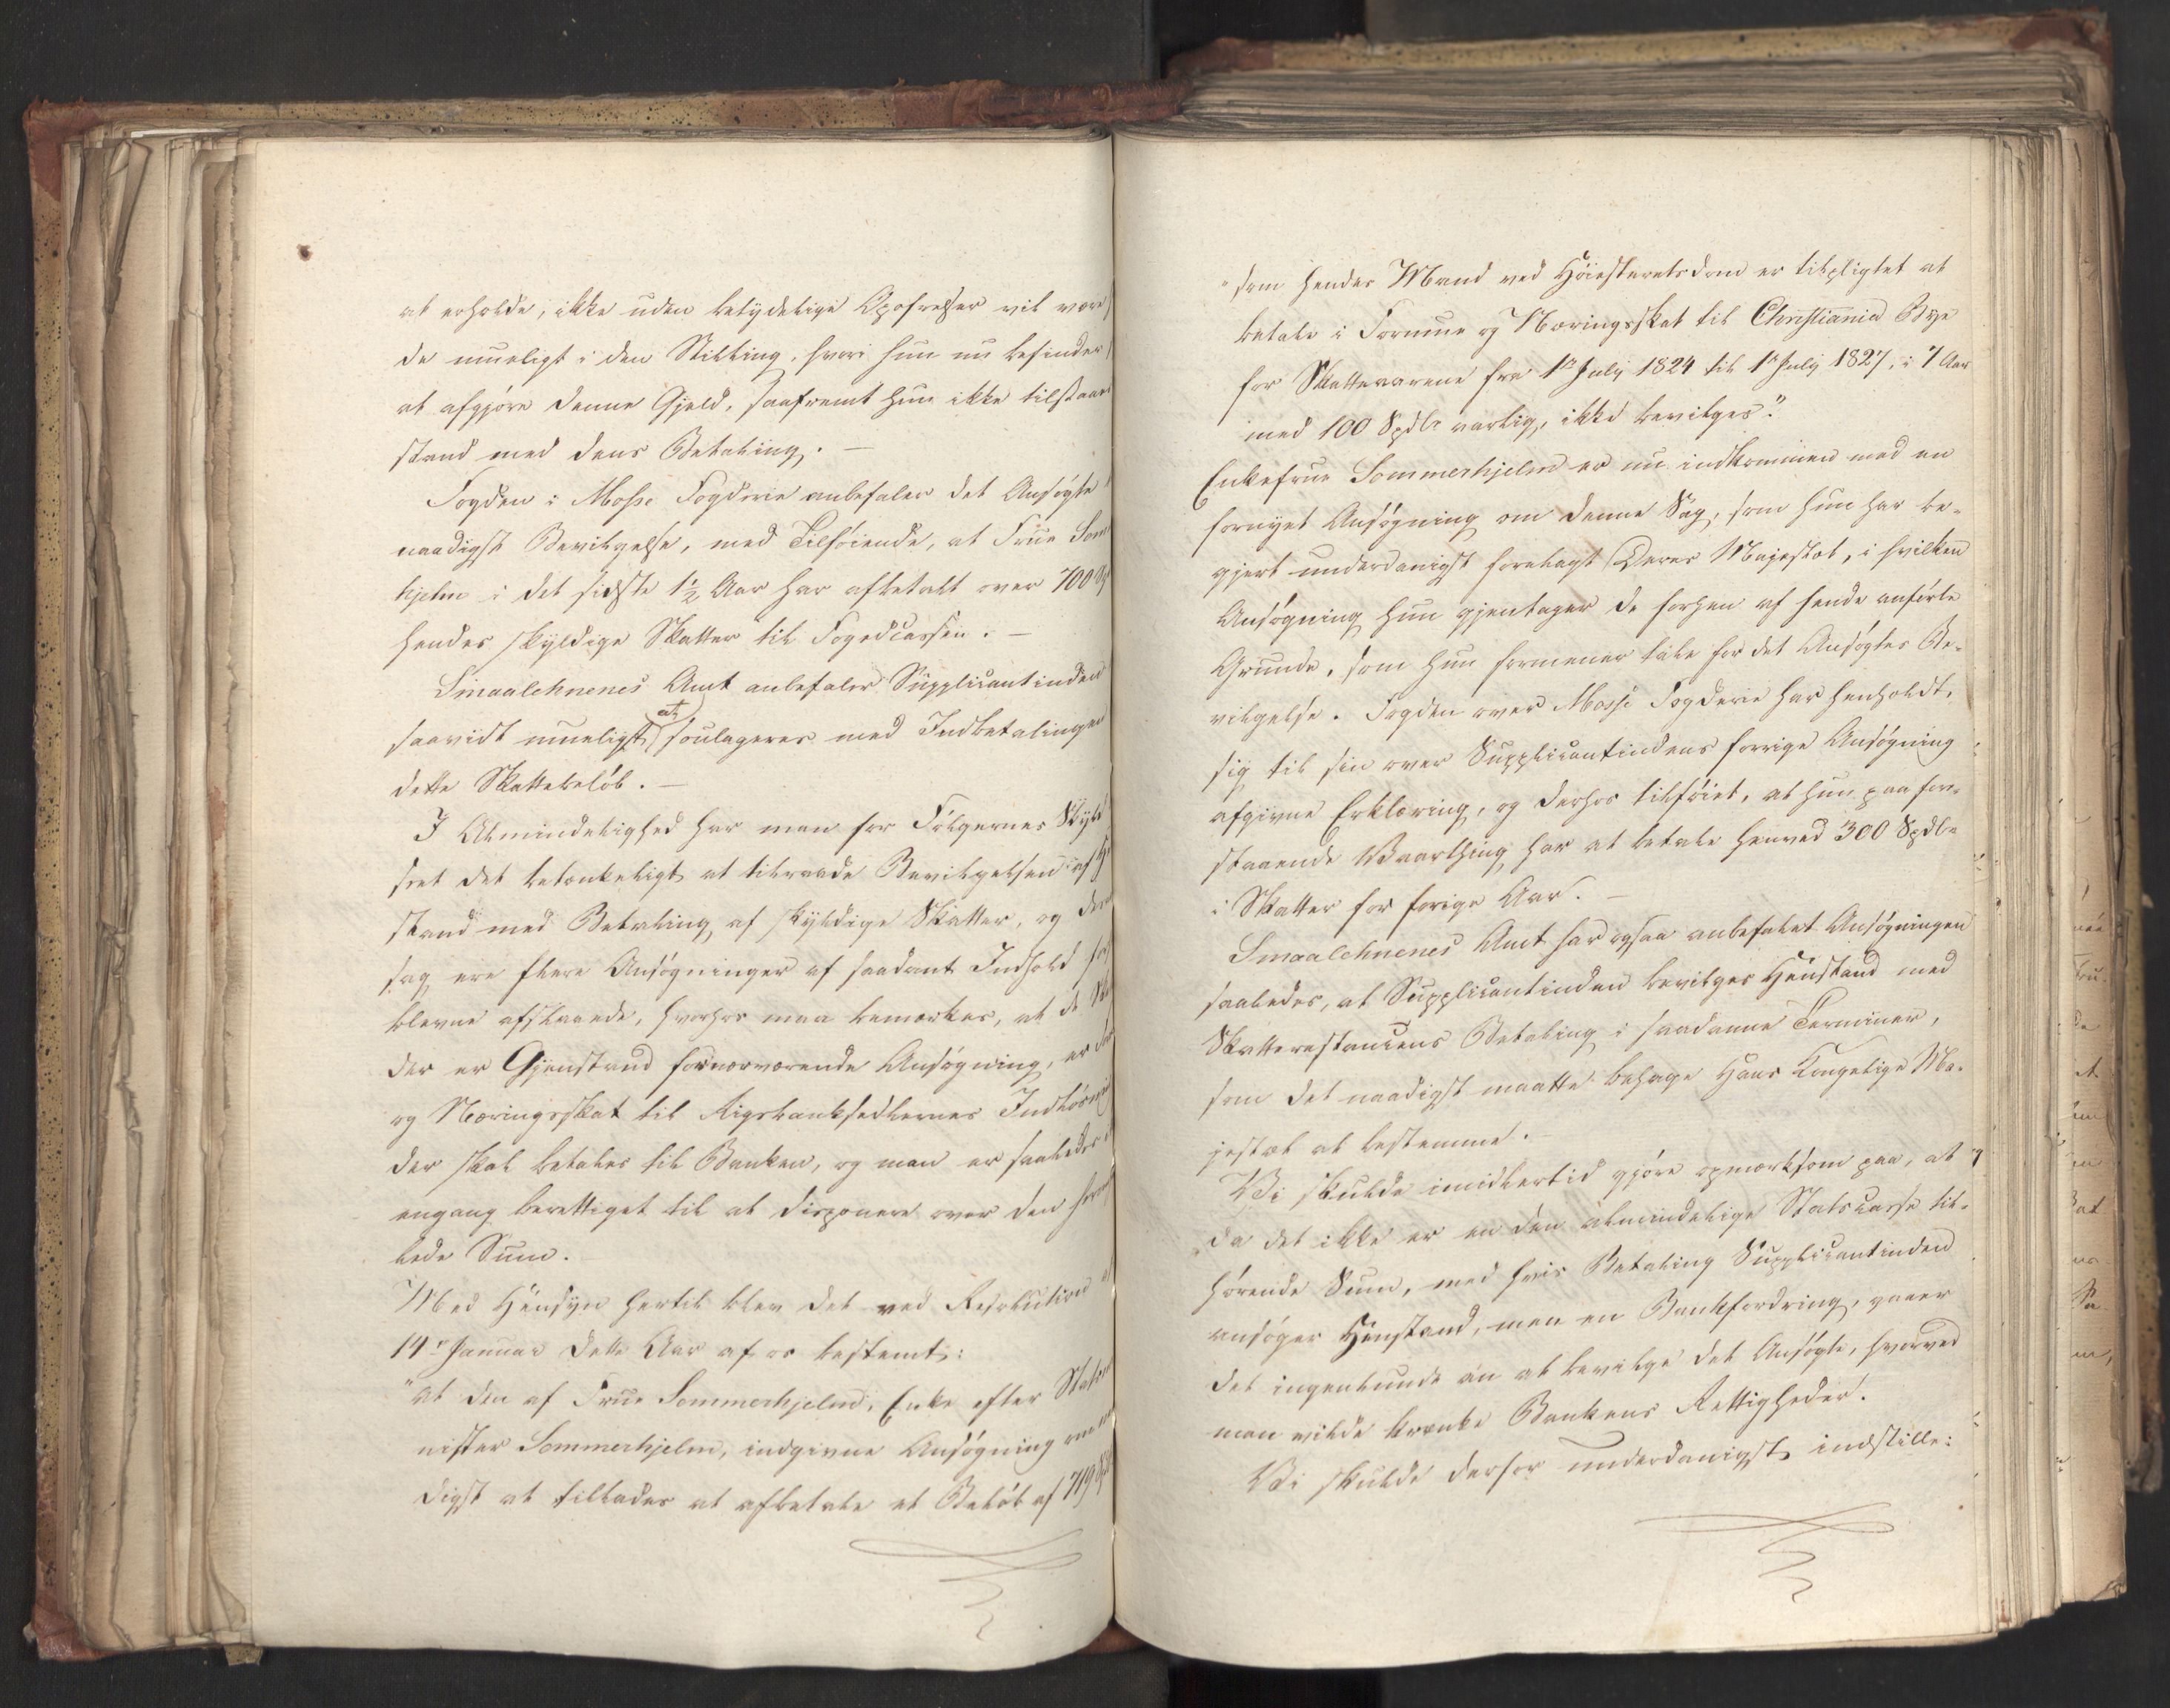 at erholde, ikke uden betydelige Opofrelser vil være
de mueligt i den Stilling, hvori hun nu befinder
at afgjøre denne Gjeld, saafremt hun ikke tilstaaes
stand med dens Betaling. —
Fogden i Mosse Fogderie anbefaler det Ansøgte
naadigst Bevilgelse, med Tilføiende, at Frue Som
hjelm i det sidste 1½ Aar har afbetalt over 700
hendes skyldige Skatter til Fogedcassen. —
Smaalehnenes Amt anbefaler Supplicantinden
saavidt mueligt at soulageres med Indbetalingen
dette Skattebeløb. —
I Almindelighed har man for Følgernes Skyld
seet det betænkeligt at tilraade Bevilgelsen af
stand med Betaling af skyldige Skatter, og
sag ere flere Ansøgninger af saadant Indhold
blevne afslaaede, hvorhos maa bemærkes, at de
der er Gjenstand for nærværende Ansøgning, er
og Næringsskat til Rigsbanksedlernes Indløsning
der skal betales til Banken, og man er saaledes
engang berettiget til at disponere over den
lede Sum.
Med Hensyn hertil blev det ved Resolution
14de Januar dette Aar af os bestemt:
"at den af Frue Sommerhjelm, Enke efter Stats
nister Sommerhjelm, indgivne Ansøgning om
digst at tillades at afbetale et Beløb af 719
"som hendes Mand ved Høiesteretsdom er tilpligtet at
betale i Formue og Næringsskat til Christiania Bye
for Skatteaarene fra 1ste July 1824 til 1ste July 1827, i 7 Aar
med 100 Spdlr aarlig, ikke bevilges."
Enkefrue Sommerhjelm er nu indkommen med en
fornyet Ansøgning om denne Sag, som hun har be-
gjert underdanigst forelagt Deres Majestæt, i hvilken
Ansøgning hun gjentager de forhen af hende anførte
Grunde, som hun formener tale for det Ansøgtes Be-
vilgelse. Fogden over Mosse Fogderie har henholdt,
sig til sin over Supplicantindens forrige Ansøgning
afgivne Erklæring, og derhos tilføiet, at hun paa fore-
staaende Vaarthing har at betale henved 300 Spdlr
i Skatter for forige Aar. —
Smaalehnenes Amt har ogsaa anbefalet Ansøgningen
saaledes, at Supplicantinden bevilges Henstand med
Skatterestancens Betaling i saadanne Terminer,
som det naadigst maatte behage Hans Kongelige Ma-
jestæt at bestemme. —
Vi skulde imidlertid gjøre opmærksom paa, at
da det ikke er en den almindelige Statscasse til-
hørende Sum, med hvis Betaling Supplicantinden
ansøger Henstand, men en Bankfordring, gaaer
det ingenlunde an at bevilge det Ansøgte, hvorved
man vilde krænke Bankens Rettigheder.
Vi skulde derfor underdanigst indstille: